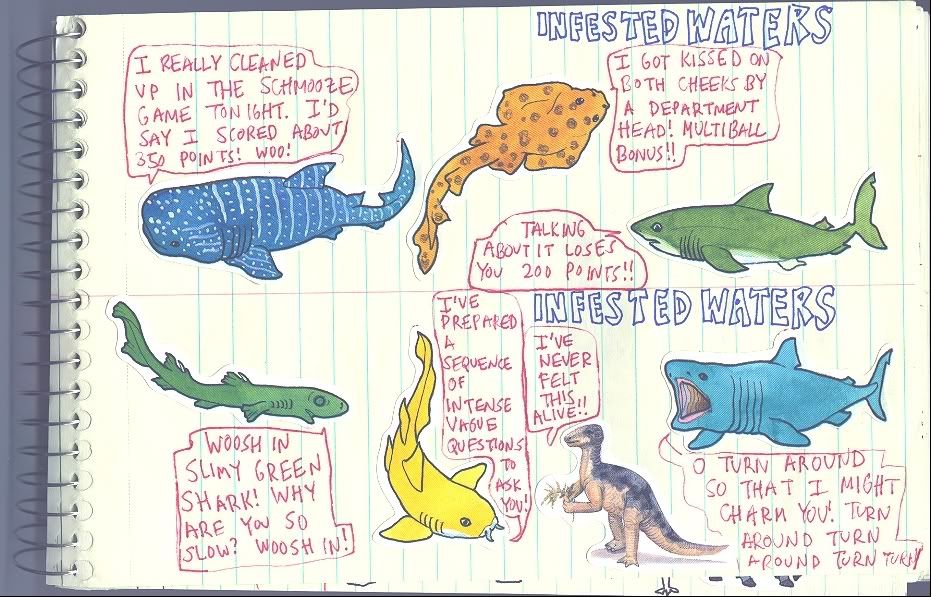 INFESTED WATERS
I REALLY CLEANED
UP IN THE SCHMOOZE
GAME TONIGHT. I'D
SAY I SCORED ABOUT
350 POINTS! WOO!
I GOT KISSED ON
BOTH CHEEKS BY
A DEPARTMENT
HEAD! MULTIBALL
BONUS!!
TALKING
ABOUT IT LOSES
YOU 200 POINTS!!
INFESTED WATERS
WOOSH IN
SLIMY GREEN
SHARK! WHY
ARE YOU SO
SLOW? WOOSH IN!
I'VE
PREPARED
A
SEQUENCE
OF
INTENSE
VAGUE
QUESTIONS
TO
ASK
YOU!
I'VE
NEVER
FELT
THIS
ALIVE!!
O TURN AROUND
SO THAT I MIGHT
CHARM YOU! TURN
AROUND TURN
AROUND TURN TURN